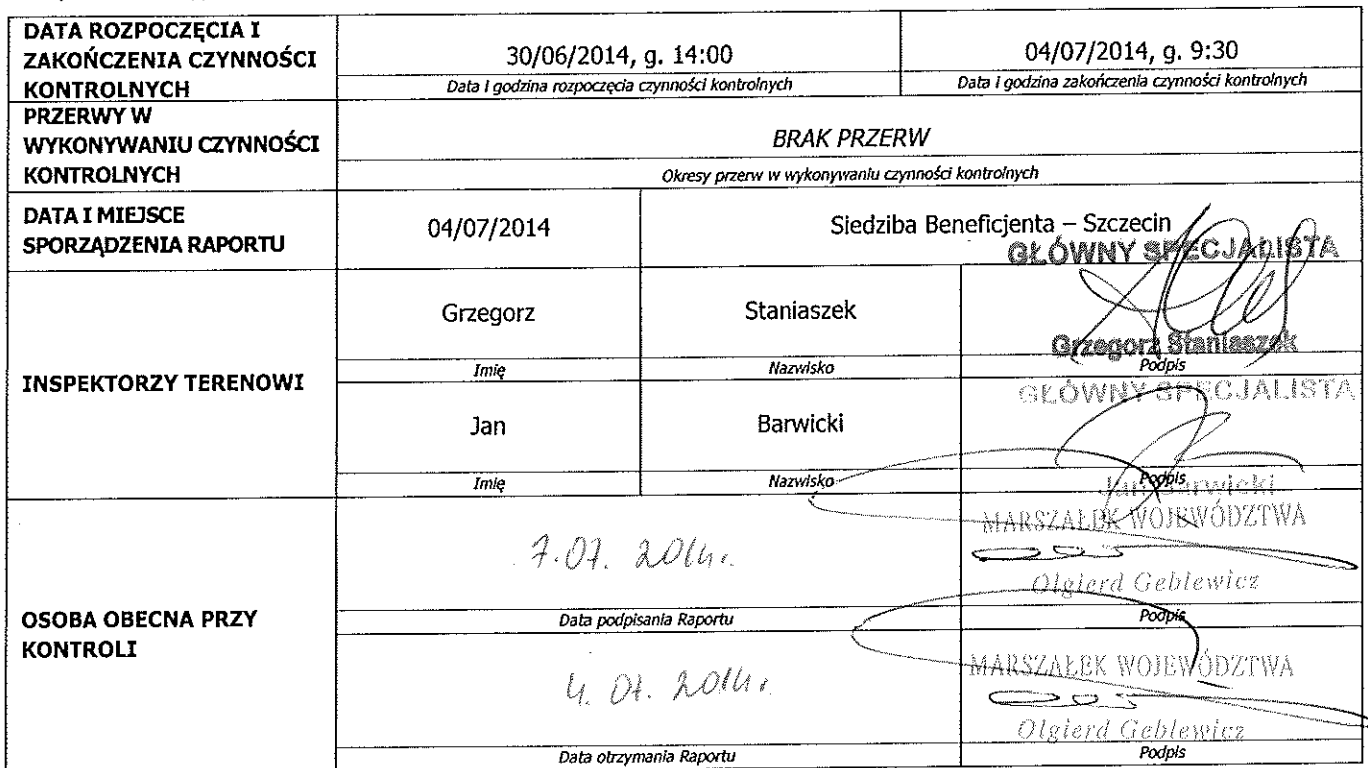 DATA ROZPOCZĘCIA I
ZAKOŃCZENIA CZYNNOŚCI
KONTROLNYCH
30/06/2014, g. 14:00
Data i godzina rozpoczęcia czynności kontrolnych
04/07/2014, g. 9:30
Data i godzina zakończenia czynności kontrolnych
PRZERWY W
WYKONYWANIU CZYNNOŚCI
KONTROLNYCH
BRAK PRZERW
Okresy przerw w wykonywaniu czynności kontrolnych
DATA I MIEJSCE
SPORZĄDZENIA RAPORTU
04/07/2014
Siedziba Beneficjenta – Szczecin
INSPEKTORZY TERENOWI
Grzegorz
Imię
Staniaszek
Nazwisko
GŁÓWNY SPECJALISTA
Grzegorz Staniaszek
Podpis
Jan
Imię
Barwicki
Nazwisko
GŁÓWNY SPECJALISTA
Jan Barwicki
Podpis
OSOBA OBECNA PRZY
KONTROLI
7.07. 2014r.
Data podpisania Raportu
MARSZAŁEK WOJEWÓDZTWA
Olgierd Geblewicz
Podpis
4. 07. 2014r.
Data otrzymania Raportu
MARSZAŁEK WOJEWÓDZTWA
Olgierd Geblewicz
Podpis